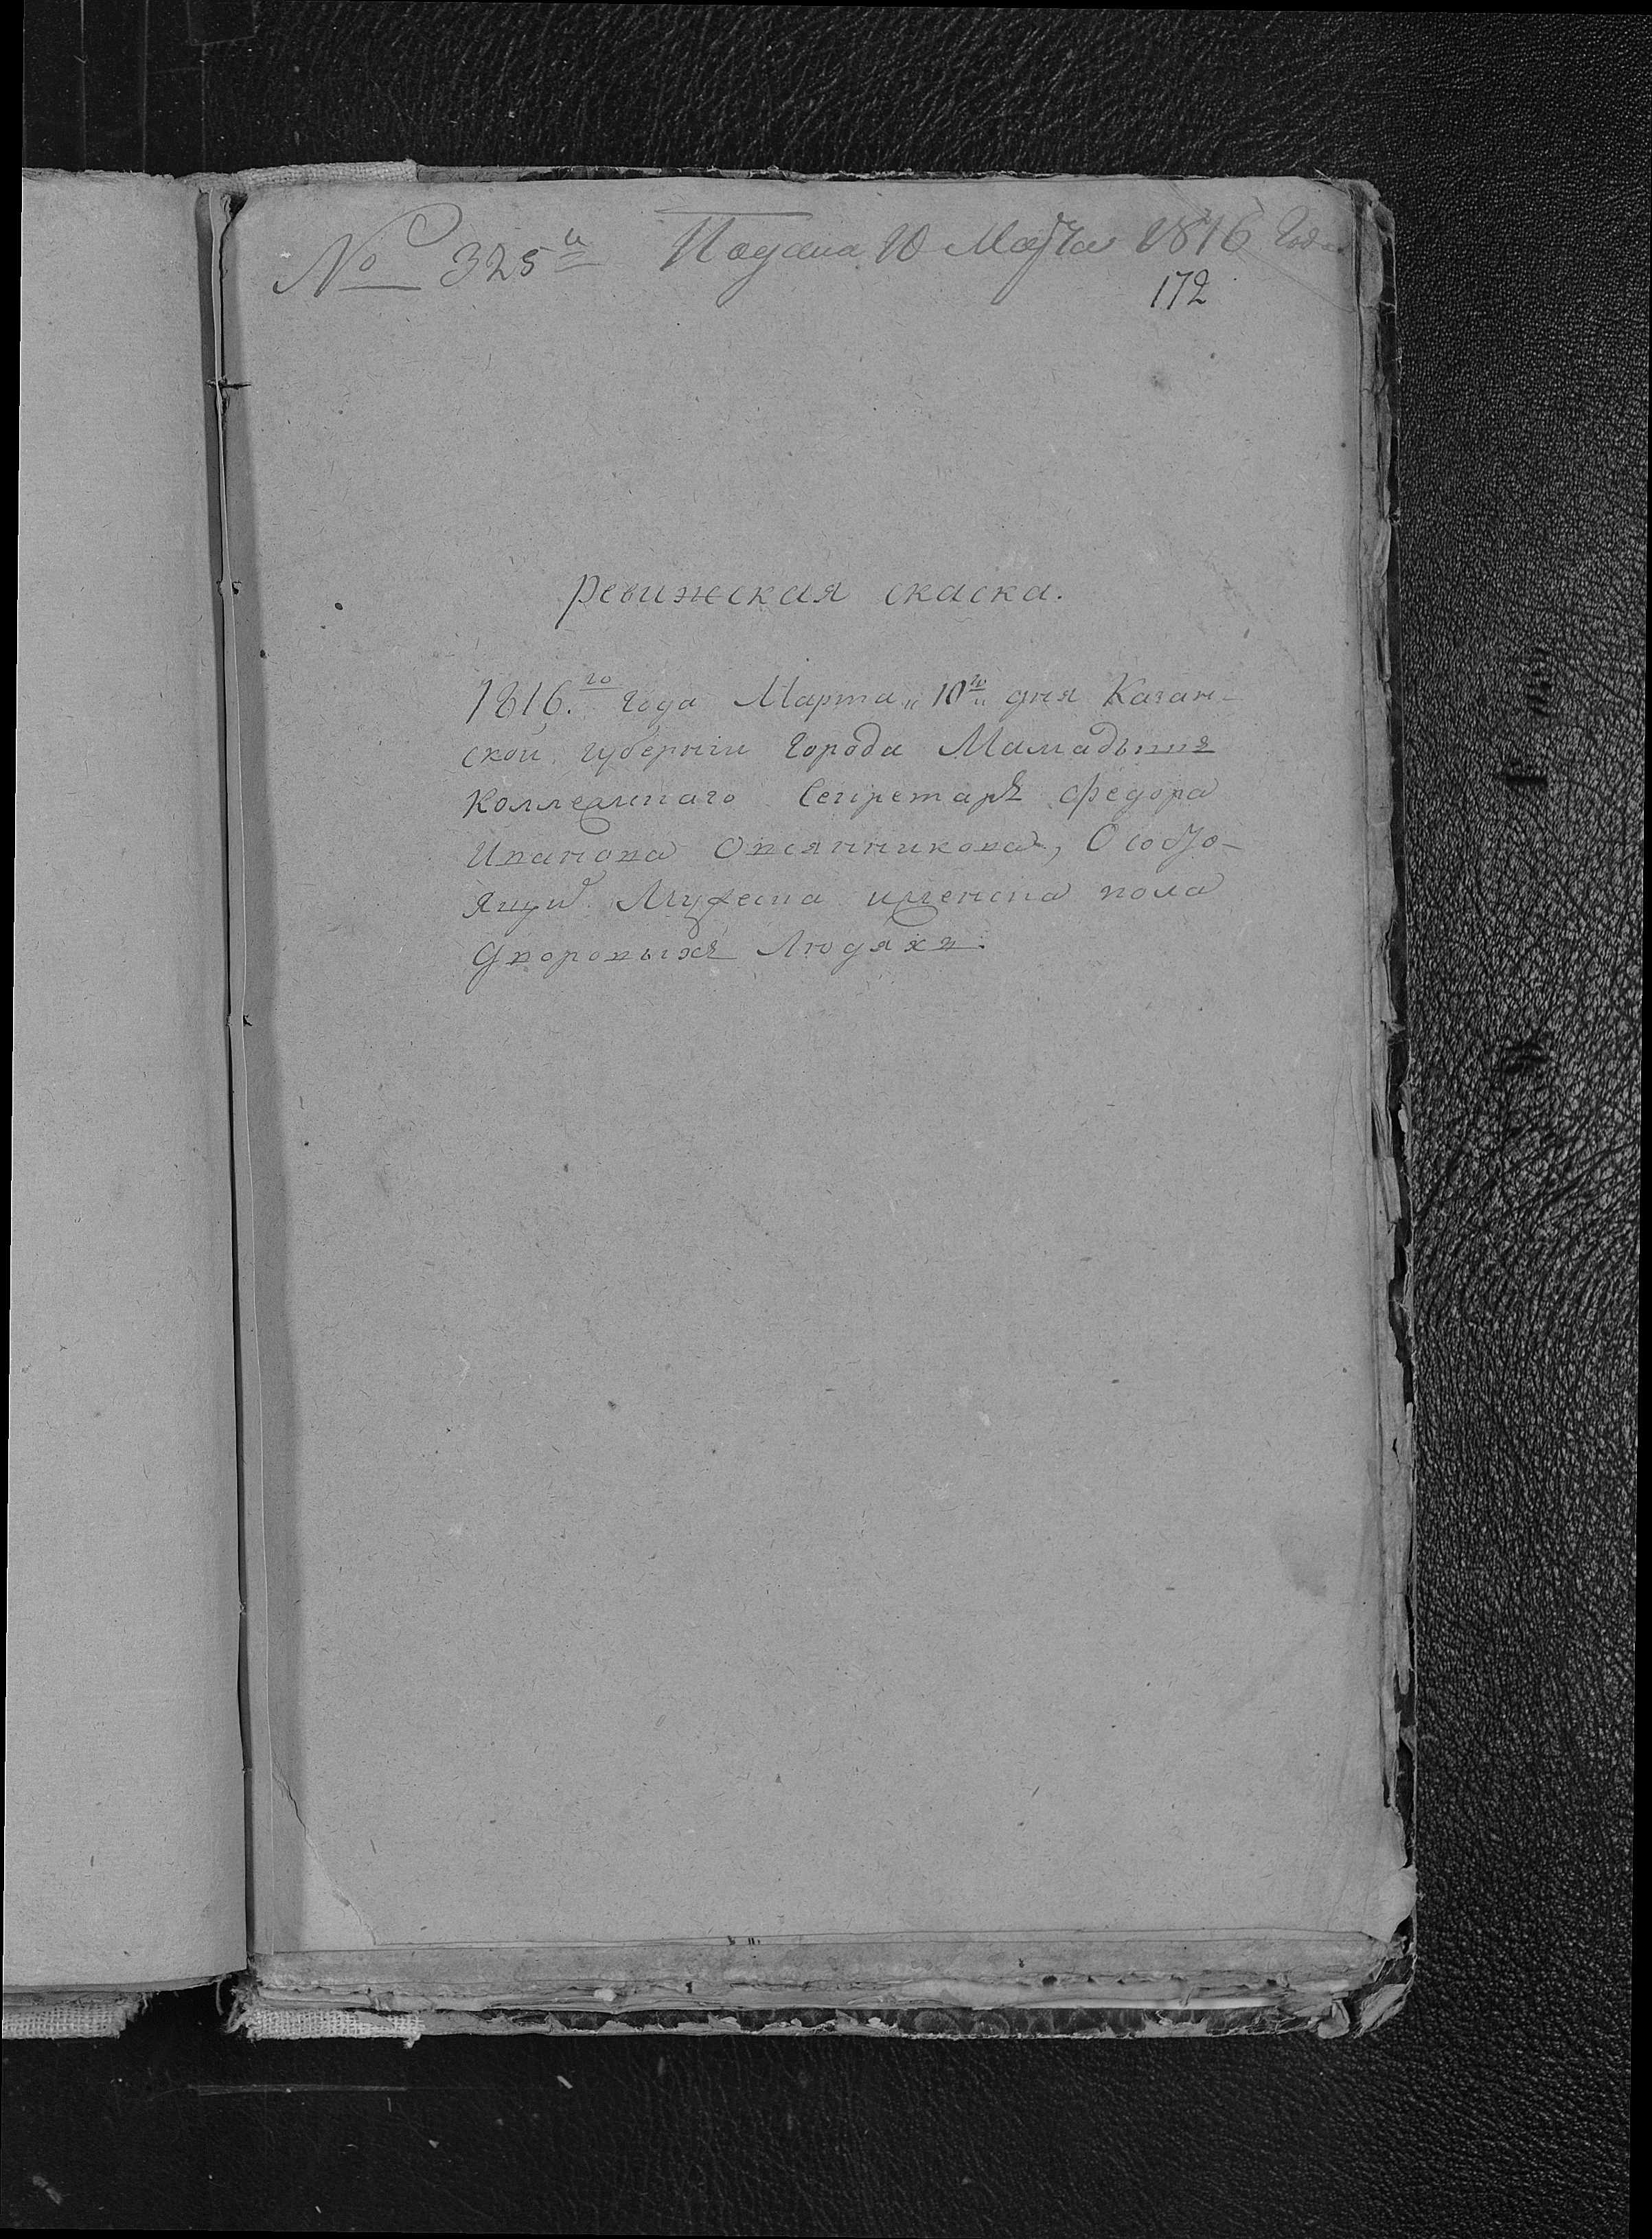 № 325й Подана 10 Марта 1816 Года
172
ревижская скаска.
1816.го года Марта „10го„ дня Казан-
ской губернiи города Мамадыша
Коллежнаго Секретаря федора
Иванова Овсянникова, О состо-
ящих Мужеска и женска пола
дворовых людяхъ.